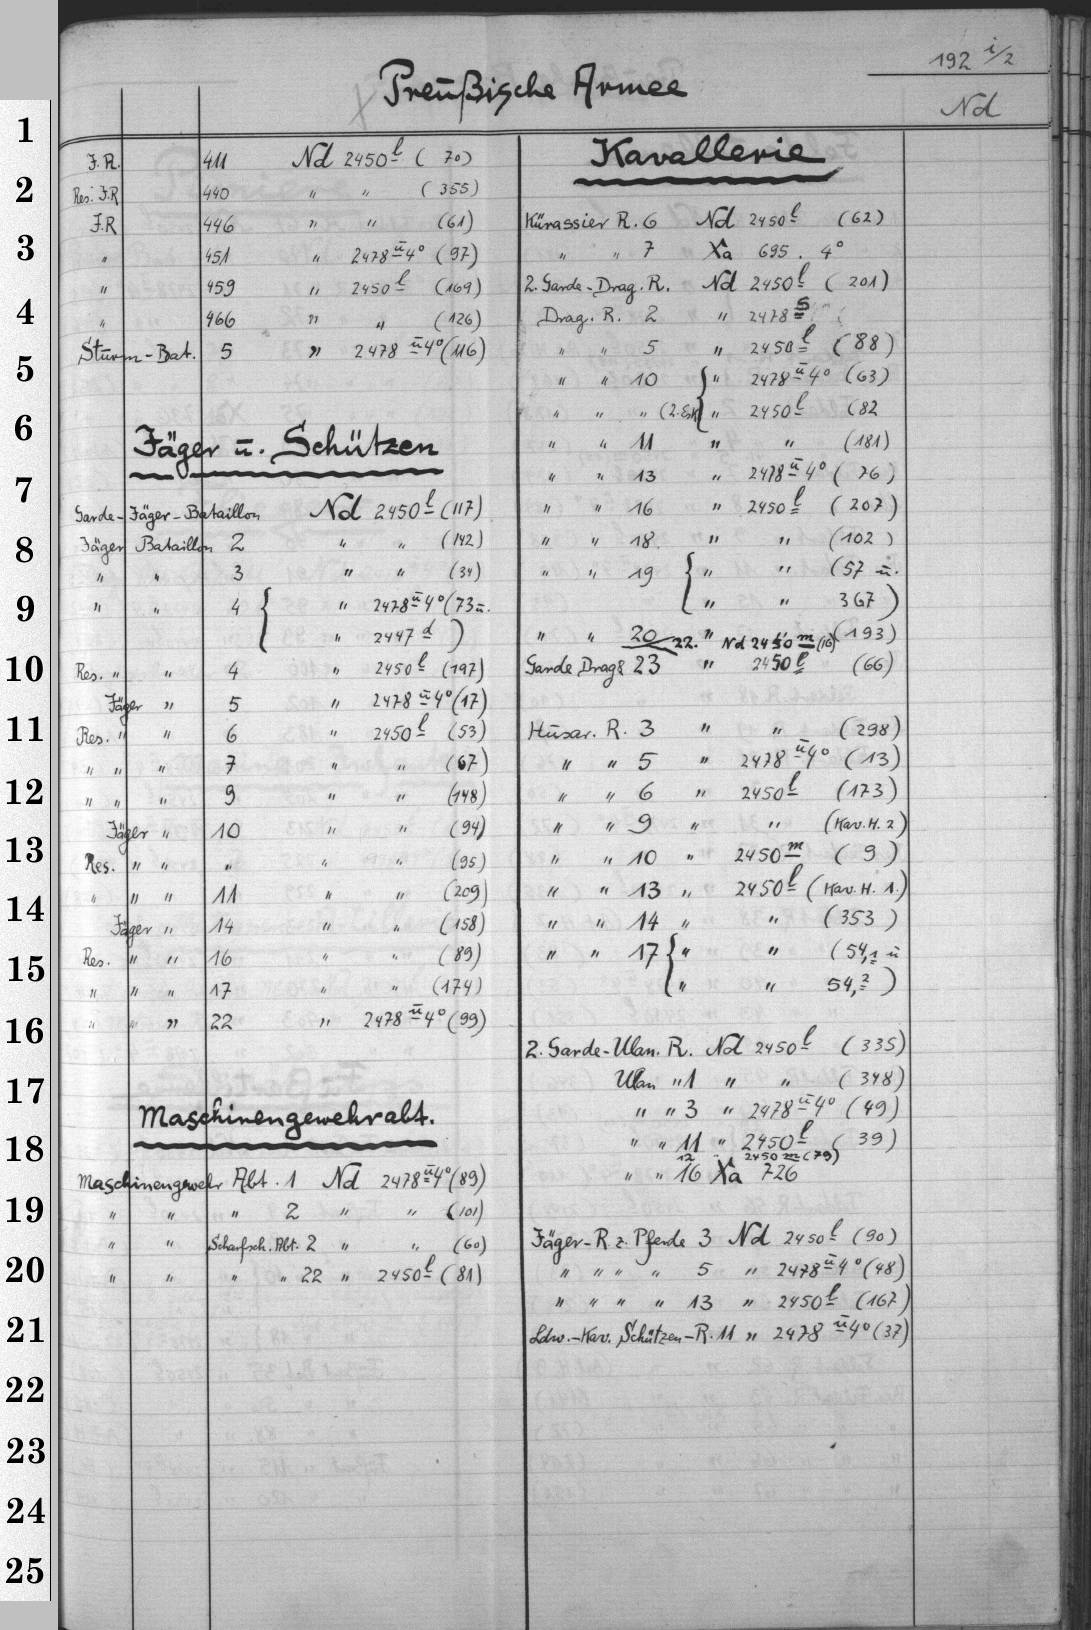 192 i/2
Preußische Armee
Nd
J.R. 411 Nd 2450 l (70)
Res. J.R 440 " " (355)
J.R 446 " " (61)
" 451 " 2478 ü 4° (97)
" 459 " 2450 l (169)
" 466 " " (126)
Sturm-Bat. 5 " 2478 ü 4° (116)
Jäger u. Schützen
Garde-Jäger-Bataillon Nd 2450 l (117)
Jäger Bataillon 2 " " (142)
" " 3 " " (34)
" " 4 { " 2478 ü 4° (73 u.
" 2447 d )
Res. " " 4 " 2450 l (197)
Jäger " 5 " 2478 ü 4° (17)
Res. " " 6 " 2450 l (53)
" " " 7 " " (67)
" " " 9 " " (148)
Jäger " 10 " " (94)
Res. " " " " " (95)
" " " 11 " " (209)
Jäger " 14 " " (158)
Res. " " 16 " " (89)
" " " 17 " " (174)
" " " 22 " 2478 ü 4° (99)
Maschinengewehrabt.
Maschinengewehr Abt. 1 Nd 2478 ü 4° (89)
" " " 2 " " (101)
" " Scharfsch. Abt. 2 " " (60)
" " " " 22 " 2450 l (81)
Kavallerie
Kürassier R. 6 Nd 2450 l (62)
" " 7 Xa 695. 4°
2. Garde-Drag. R. Nd 2450 l (201)
Drag. R. 2 " 2478 s
" " 5 " 2450 l (88)
" " 10 { " 2478 ü 4° (63)
" " " (2. Esk { " 2450 l (82
" " 11 " " (181)
" " 13 " 2478 ü 4° (76)
" " 16 " 2450 l (207)
" " 18 " " (102)
" " 19 { " " (57 u.
{ " " 367)
" " 20 " " (193)
22. Nd 2450 m (16)
Garde Drag 23 " 2450 l (66)
Husar. R. 3 " " (298)
" " 5 " 2478 ü 4° (13)
" " 6 " 2450 l (173)
" " 9 " " (Kav. H. 2)
" " 10 " 2450 m (9)
" " 13 " 2450 l (Kav. H. 1.)
" " 14 " " (353)
" " 17 { " " (54,1 u
{ " " 54,2)
2. Garde-Ulan. R. Nd 2450 l (335)
Ulan " 1 " " (348)
" " 3 " 2478 ü 4° (49)
" " 11 " 2450 l (39)
12 " 2450 m (79)
" " 16 Xa 726
Jäger-R. z. Pferde 3 Nd 2450 l (90)
" " " " 5 " 2478 ü 4° (48)
" " " " 13 " 2450 l (167)
Ldw.-Kav. Schützen-R. 11 " 2478 ü 4° (37)
1
2
3
4
5
6
7
8
9
10
11
12
13
14
15
16
17
18
19
20
21
22
23
24
25